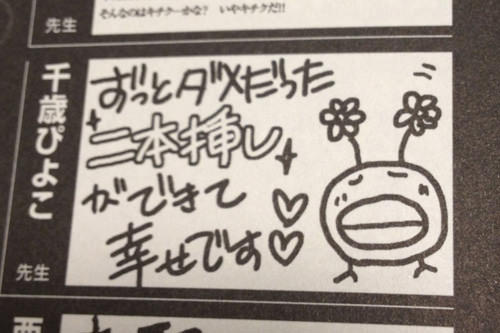 そんなのはキチクーかな? いやキチクだ!!
先生
千歳ぴよこ
先生
ずっとダメだった
二本挿し
ができて
幸せです♡